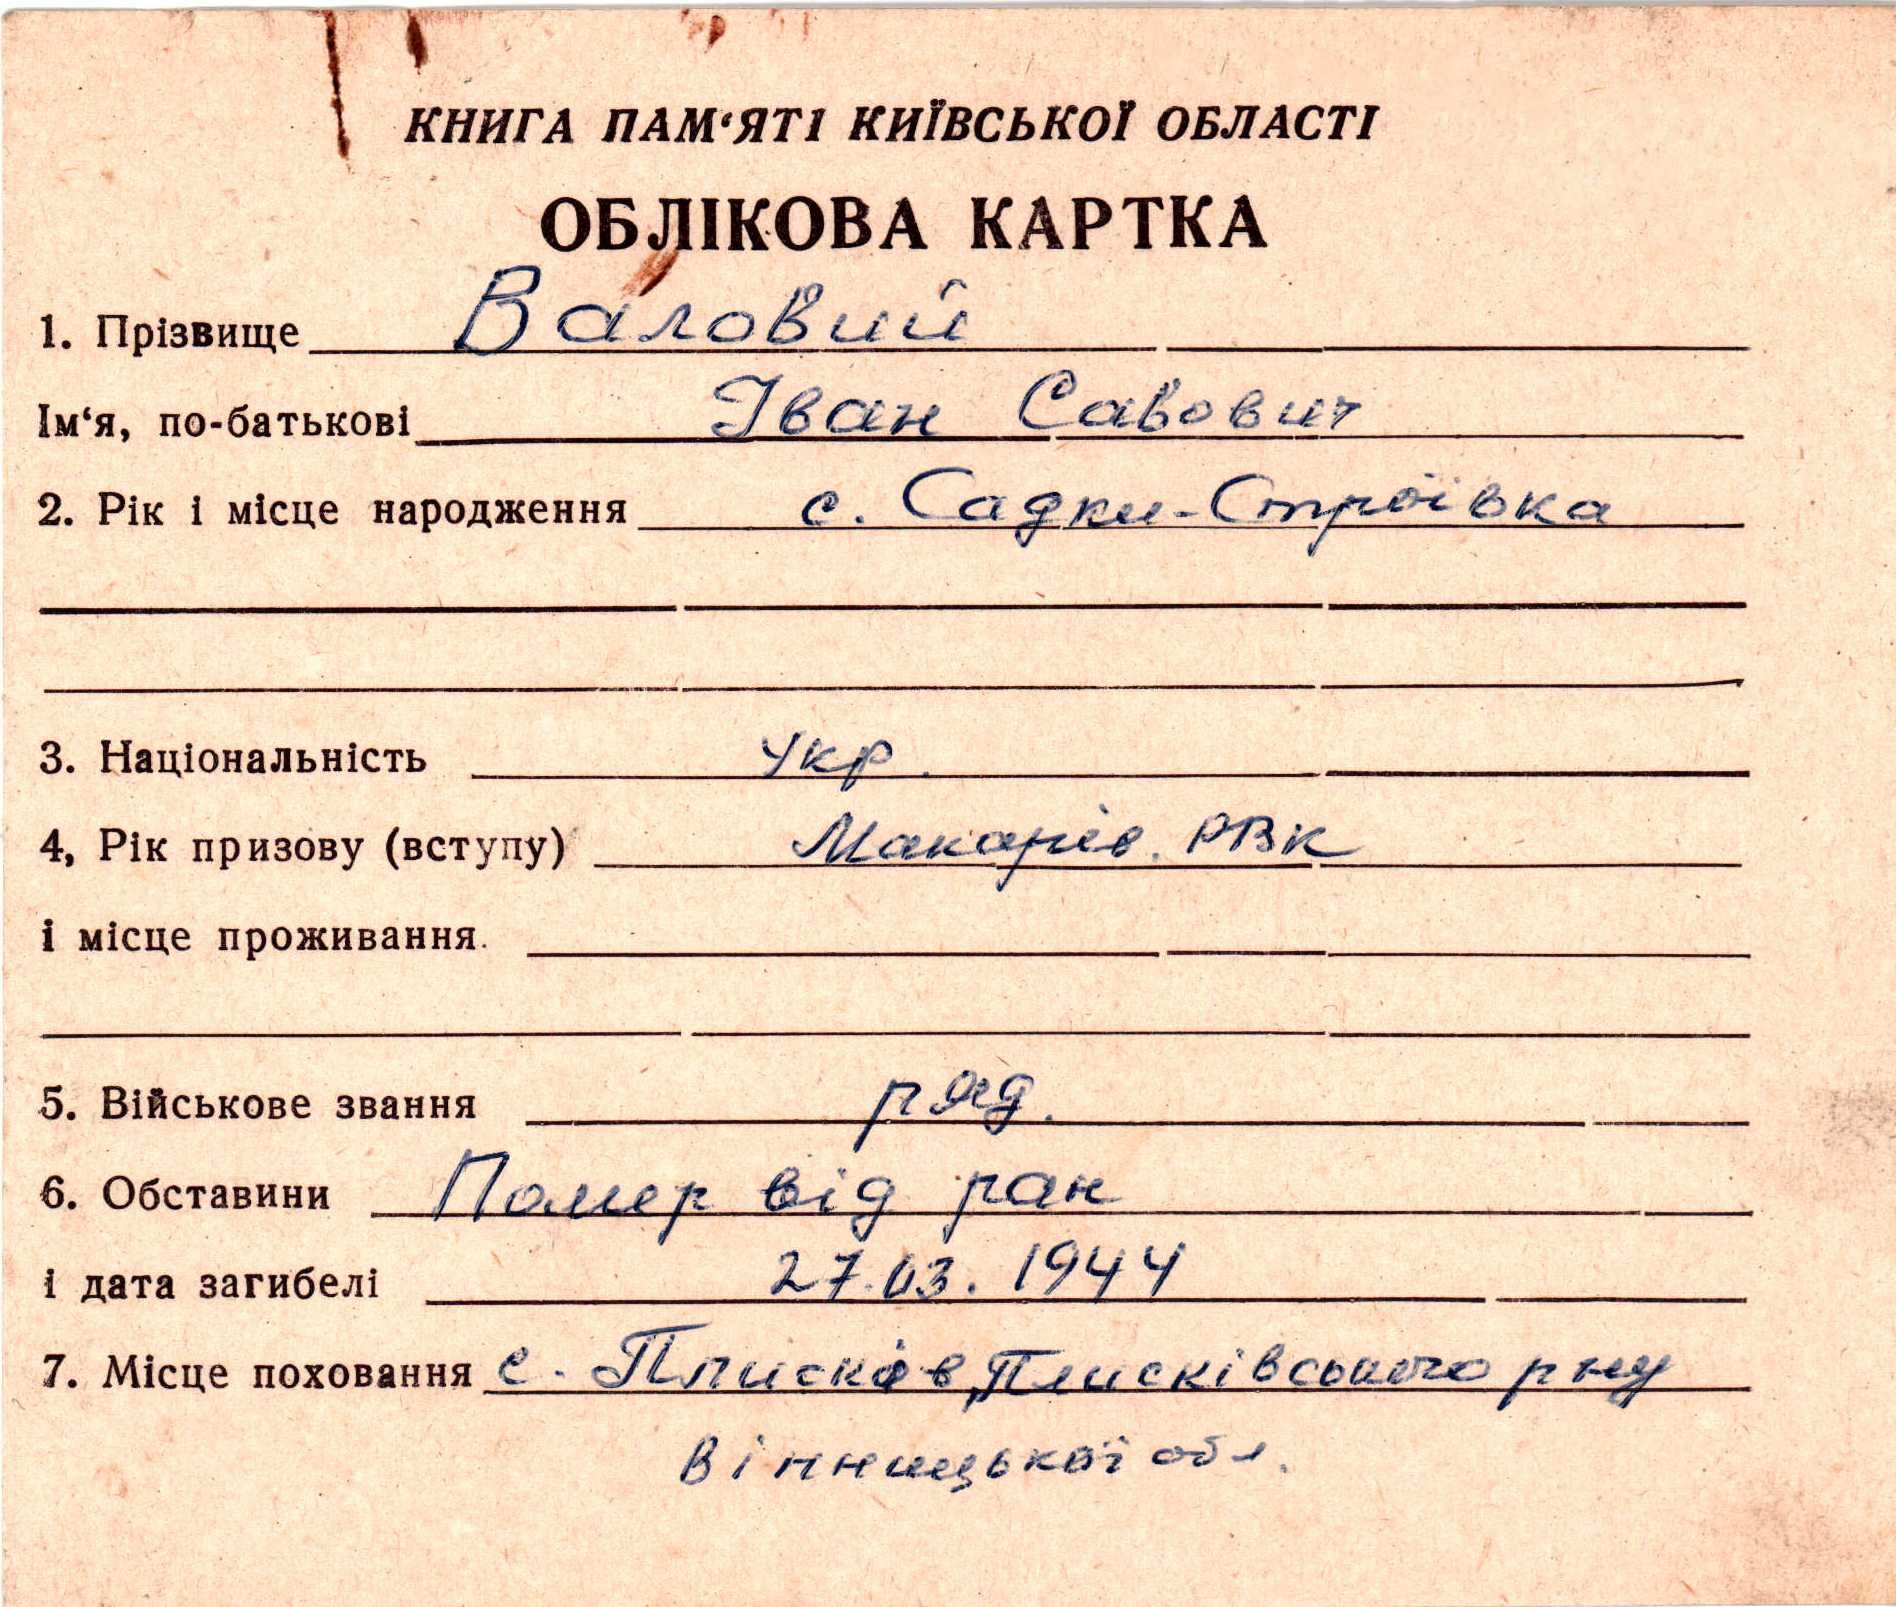 КНИГА ПАМ‘ЯТІ КИЇВСЬКОЇ ОБЛАСТІ
ОБЛІКОВА КАРТКА
1. Прізвище Валовий
Ім‘я, по-батькові Іван Савович
2. Рік і місце народження с. Садки-Строївка
3. Національність укр.
4, Рік призову (вступу) Макарів. РВК
і місце проживання.
5. Військове звання ряд.
6. Обставини Помер від ран
і дата загибелі 27.03.1944
7. Місце поховання с. Плисків, Плисківського р-ну
Вінницької обл.